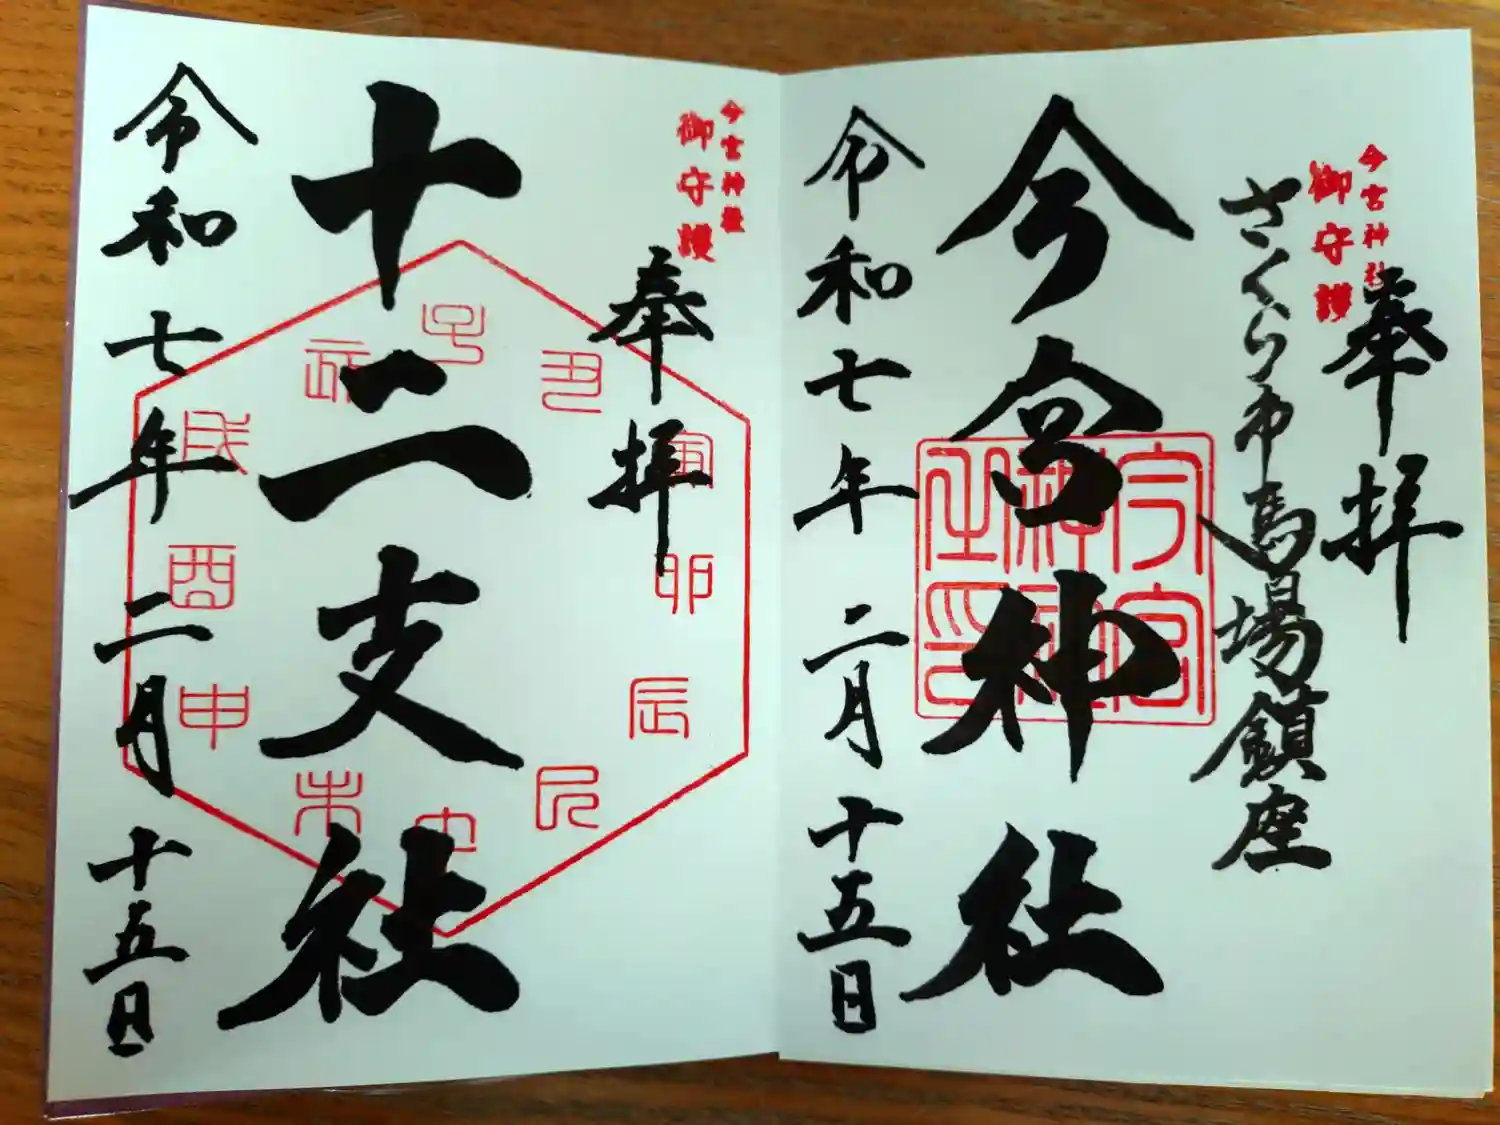 奉拝
今宮神社
御守護
さくら市馬場鎮座
今宮神社
今宮
神社
之印
令和七年二月十五日
今宮神社
御守護
奉拝
十二支社
子
丑
寅
卯
辰
巳
午
未
申
酉
戌
亥
令和七年二月十五日